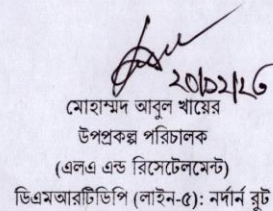 ২০/০২/২৬
মোহাম্মদ আবুল খায়ের
উপপ্রকল্প পরিচালক
(এলএ এন্ড রিসেটেলমেন্ট)
ডিএমআরটিডিপি (লাইন-৫): নর্দার্ন রুট